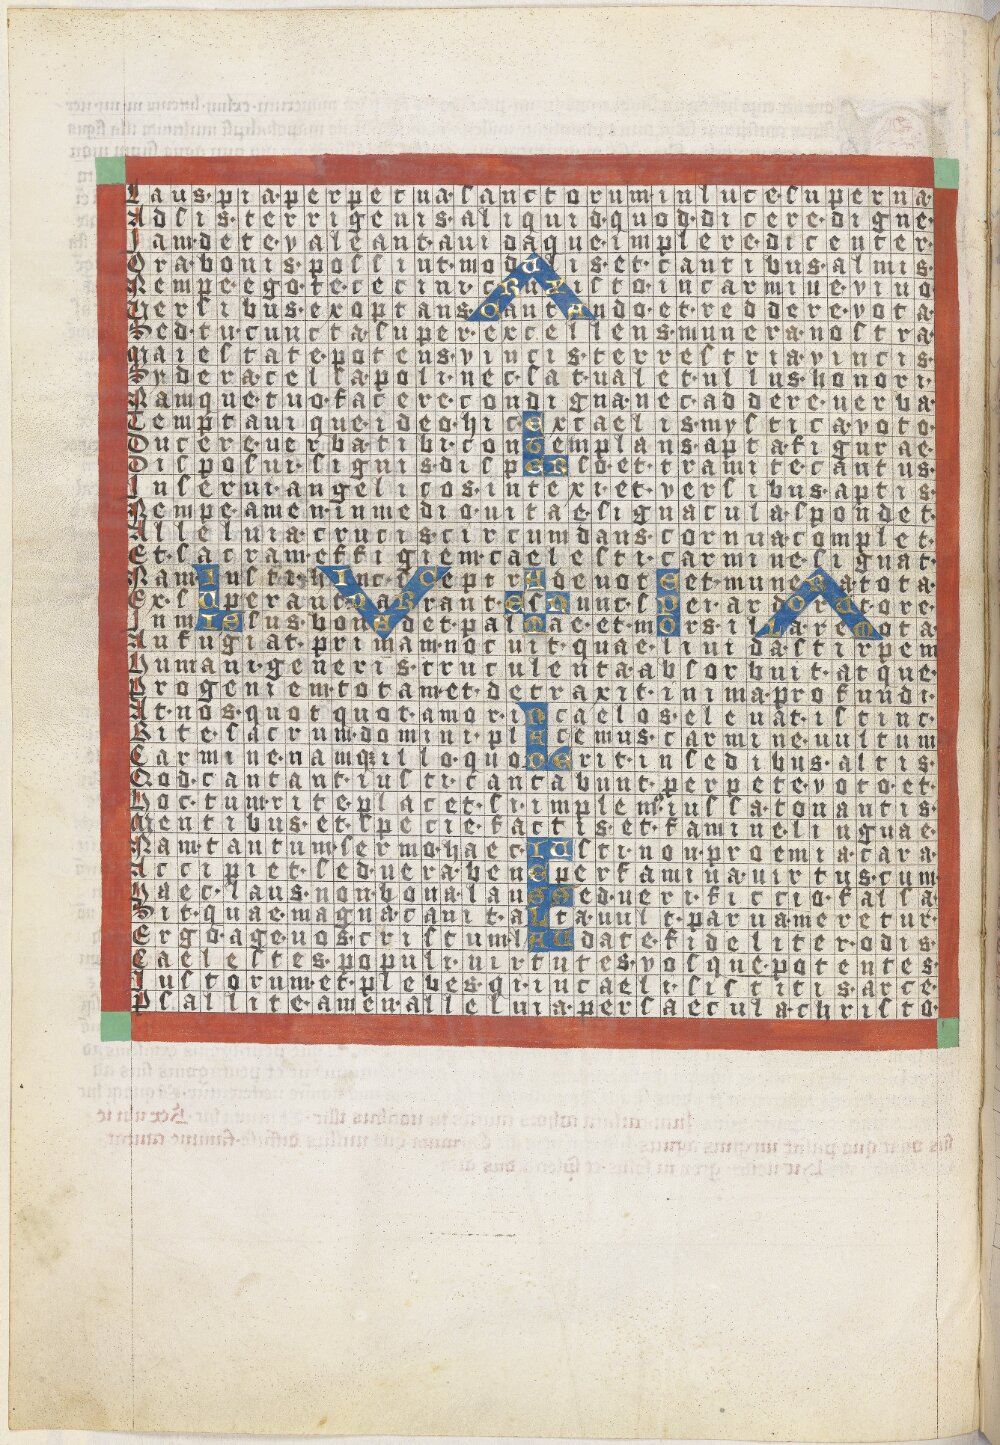 Laus·pia·perpetua·sanctorum·in·luce·superna
Adsis·terrigenis·aliquid·quod·dicere·digne·
Iam·de·te·valeant·aui·daque·implere·dicenter·
Ora·bonis·possint·modulis·et·cantibus·almis·
Nempe·ego·te·cecini·cruxisto·in·carmine·uiuo
Versibus·exoptans·cantando·et·reddere·vota
Sed·tu·cuncta·super·excellens·munera·nostra
Maiestate·potens·vincis·terrestria·vincis·
Sydera·celsa·poli·nec·sat·ualet·ullus·honori·
Namque·tuo·facere·condigna·nec·addere·uerba
Temptaui·que·ideo·hic·ex·caelis·mystica·voto
Ducere·uerba·tibi·contemplans·apta·figurae·
Disposui·signis·disperso·et·tramite·cantus
Inserui·angelicos·intexi·et·versibus·aptis·
Nempe·amen·in·medio·uitae·signacula·spondet·
Alleluia·crucis·circumdans·cornua·complet·
Et·sacram·effigiem·caelesti·carmine·signat·
Nam·iusti·hinc·sceptra·deuote·et·munera·tota
Exsuperant·narrant·es·nunc·spei·ardor
Inmissus·bona·det·palmae·et·morsilla·remota
Aufugiat·primam·nocuit·quae·liuida·stirpem
Humani·generis·truculenta·absorbuit·atque·
Progeniem·totam·et·detraxit·in·ima·profundi·
At·nos·quotquot·amor·in·caelos·eleuat·istinc·
Rite·sacrum·domini·placemus·carmine·uultum
Carmine·namq·illo·quod·erit·in·sedibus·altis·
Qod·cantant·iusti·cantabunt·perpete·voto·et·
Hoc·tum·rite·placet·si·implemus·iussa·tonantis·
Mentibus·et·specie·factis·et·famine·linguae·
Nam·tantum·sermo·haec·iusti·non·proemia·cara
Accipiet·sed·uera·bene·per·famina·uirtus·cum
Haec·laus·non·bona·laus·med·ueri·ficcio·falsa
Sit·quae·magna·cauit·alta·uult·parua·meretur·
Ergo·age·uos·cristum·laudate·fideliter·odis·
Caelestes·populi·uirtutes·vosque·potentes·
Iustorum·et·plebes·qi·in·caeli·sistitis·arce·
Psallite·amen·alleluia·per·saecula·christo·